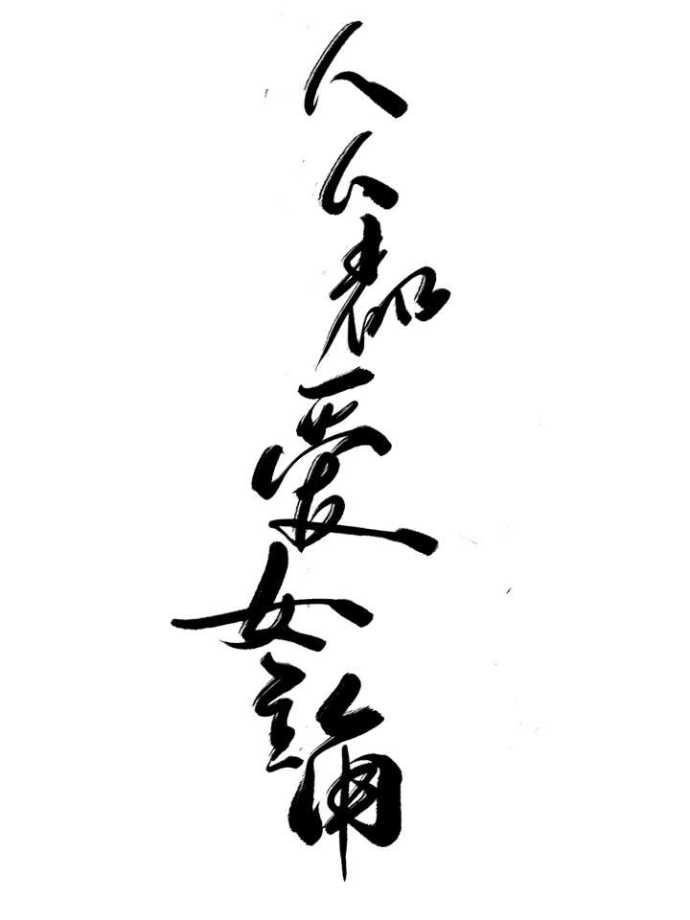 人人都爱女論